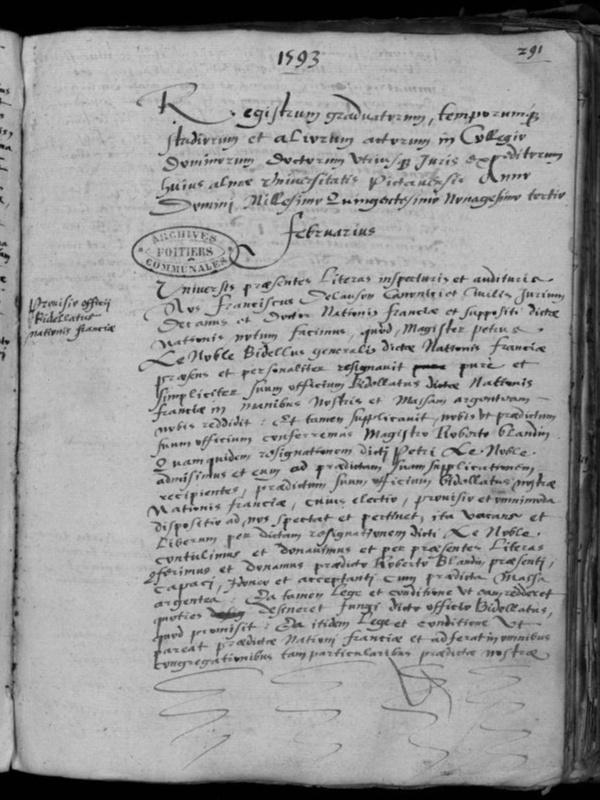 1593
291
Registrum graduatorum, temporumq;
studiorum et aliorum actorum in Collegio
Dominorum Doctorum Utriusq; Juris expeditorum
huius almae Universitatis Pictavensis Anno
Domini Millesimo Quingentesimo Nonagesimo tertio
februarius
ARCHIVES
POITIERS
COMMUNALES
Provisio officij
Bidellatus
nationis franciae
Universis praesentes Literas inspecturis et audituris.
Nos Franciscus Delauson Canonici et Civilis Jurium
Decanus et Doctor Nationis Franciae et suppositi dictae
Nationis notum facimus, quod Magister petrus
Le Noble Bidellus generalis dictae Nationis Franciae
praesens et personaliter resignavit pure et
simpliciter suum officium Bidellatus dictae Nationis
franciae in manibus Nostris et Massam argenteam
nobis reddidit : Et tamen supplicavit nobis ut praedictum
suum officium conferremus Magistro Roberto blandin
Quamquidem resignationem dicti Petri Le Noble.
admisimus et eum ad praedictam suam supplicationem
recipientes, praedictum suum officium bidellatus nostrae
Nationis franciae, cuius electio, provisio et omnimoda
dispositio ad nos spectat et pertinet, ita vacans et
Liberum per dictam resignationem dicti Le Noble.
contulimus et donavimus et per praesentes Literas
conferimus et donamus praedicto Roberto Blandin praesenti,
capaci, idoneo et acceptanti cum praedicta Massa
argentea : Ea tamen Lege et conditione ut eam redderet
quoties desineret fungi dicto officio Bidellatus,
quod promisit : Ea itidem Lege et conditione Ut
pareat praedictae Nationi franciae et adferat in omnibus
congregationibus tam particularibus praedictae nostrae